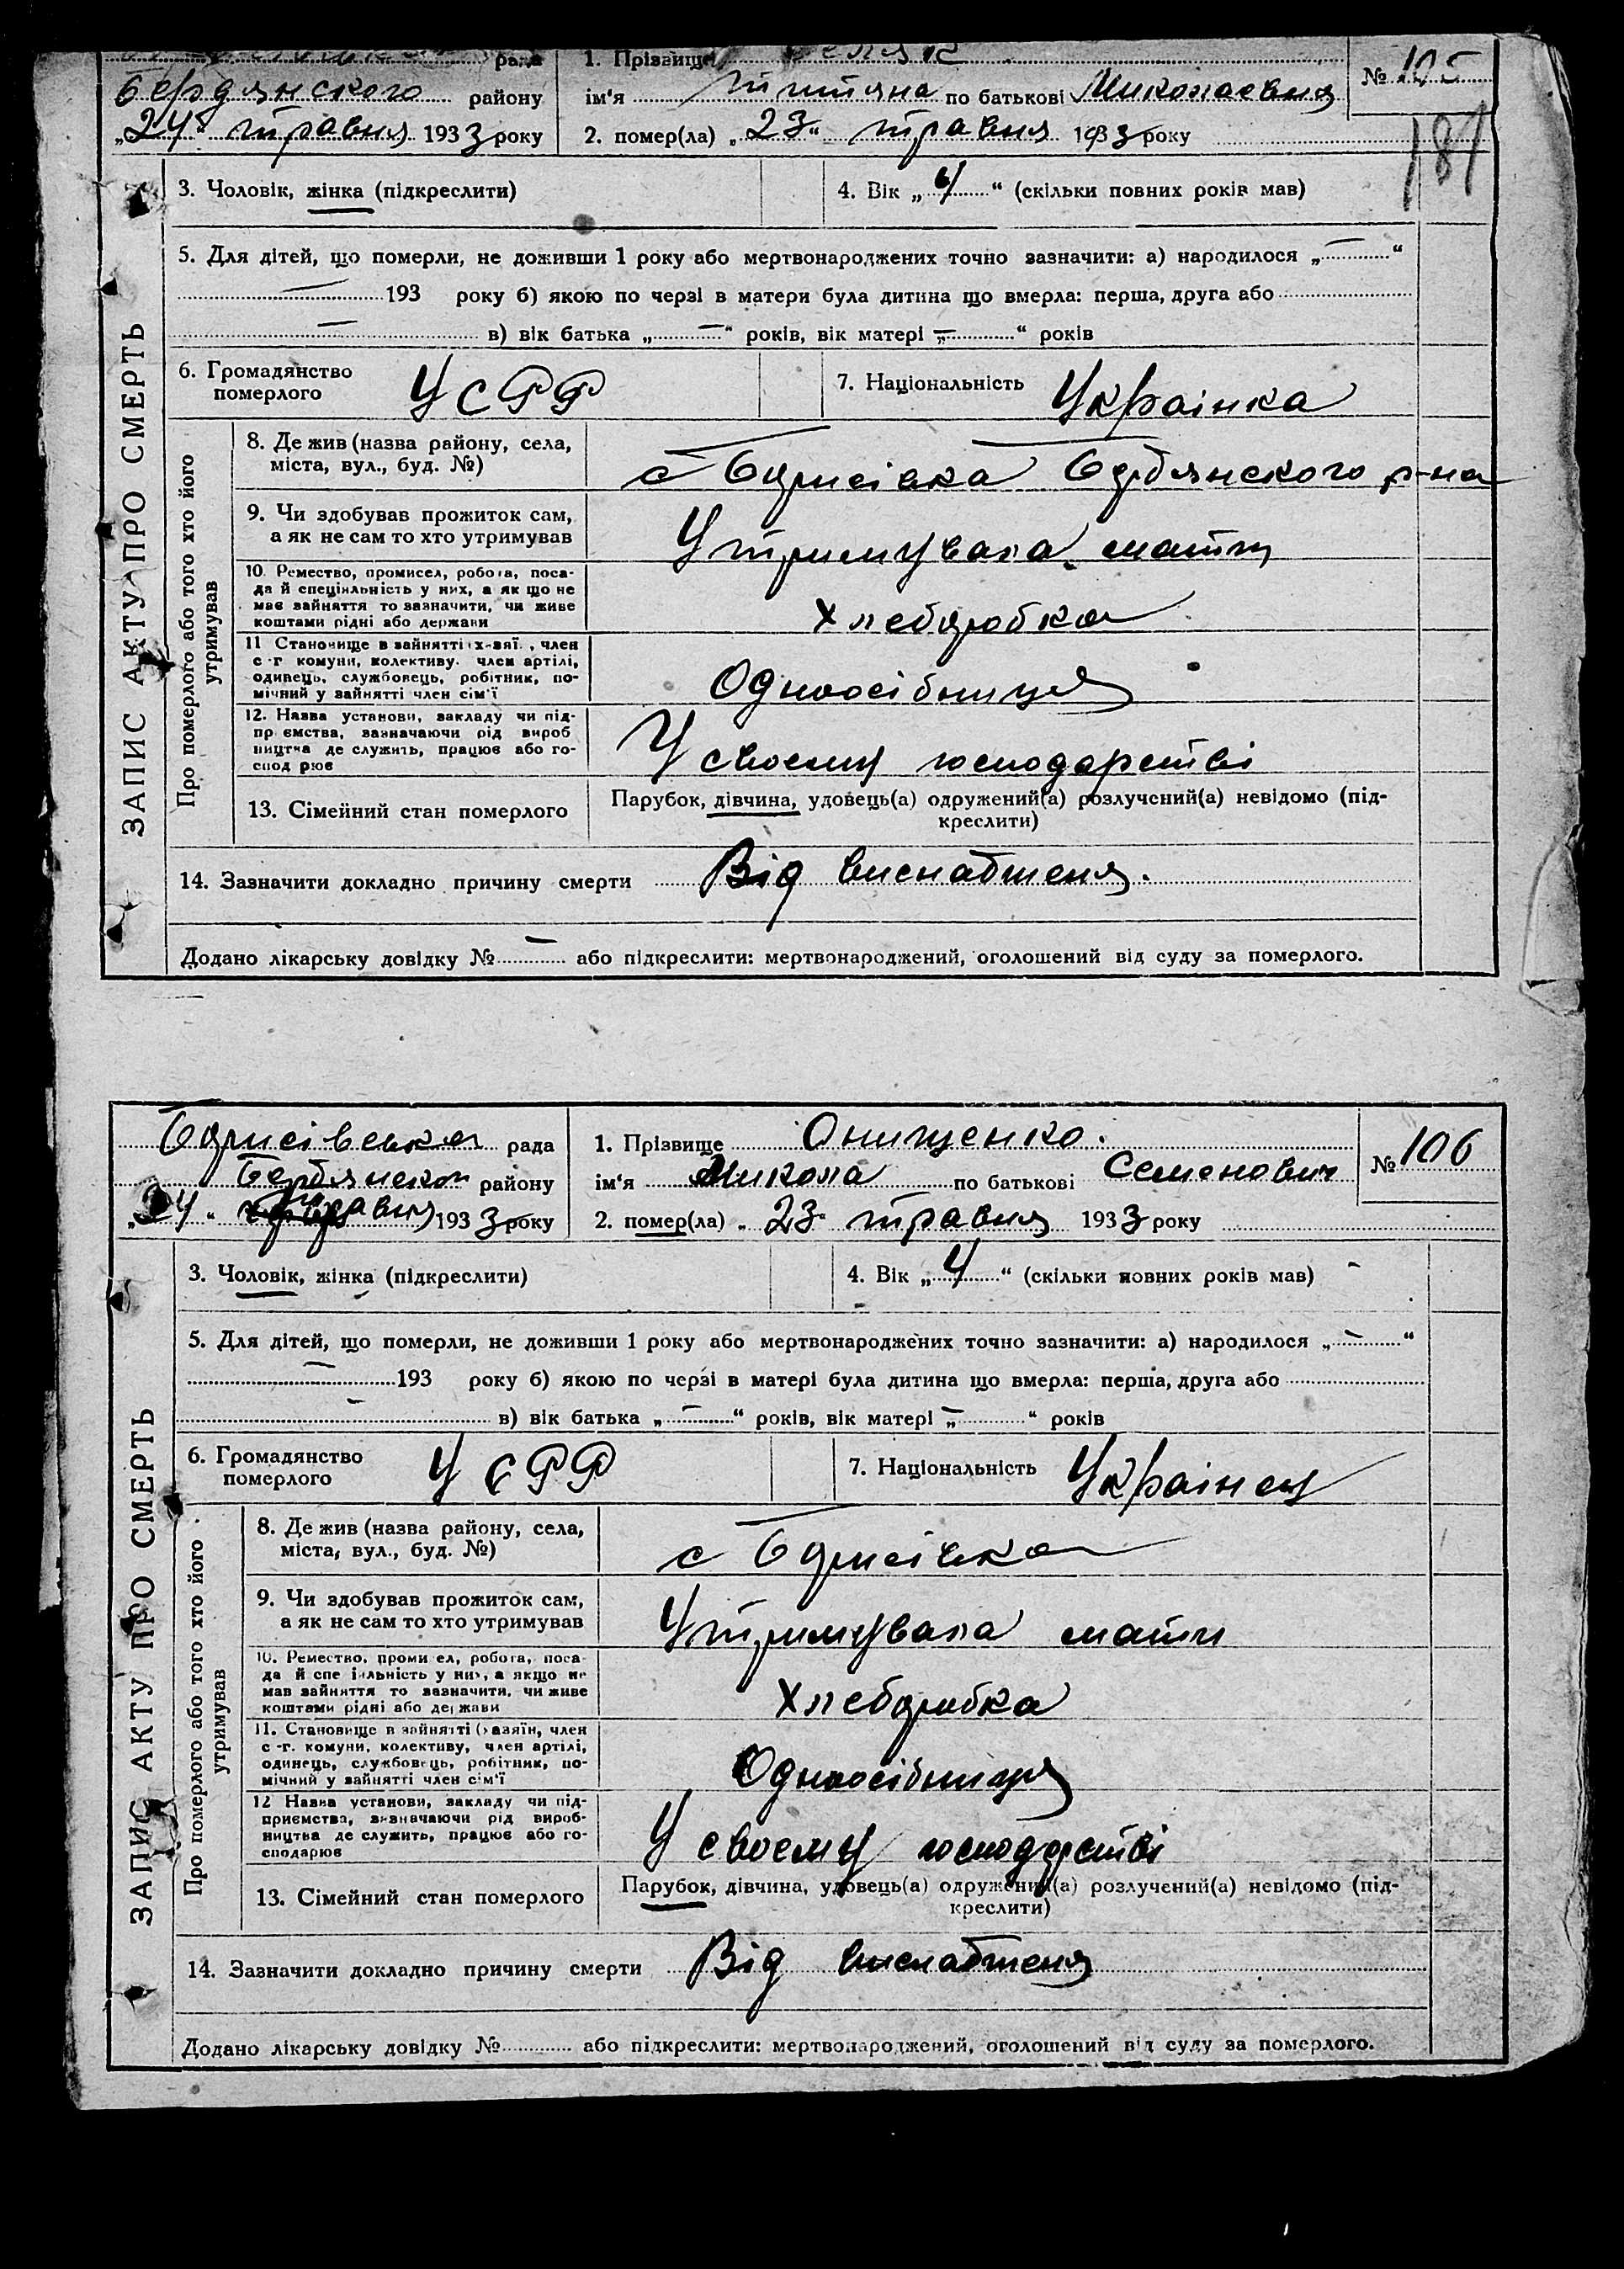 рада 1. Прізвище
Бердянского району ім'я Титяна по батькові Миколаевна № 105
„24“ травня 1933 року 2. помер(ла) „23“ травня 1933 року
181
3. Чоловік, жінка (підкреслити) 4. Вік „ “ (скільки повних років мав)
5. Для дітей, що померли, не доживши 1 року або мертвонароджених точно зазначити: а) народилося „—“
— 193 року б) якою по черзі в матери була дитина що вмерла: перша, друга або
— в) вік батька „—“ років, вік матері „—“ років
6. Громадянство
померлого УСРР 7. Національність Українка
8. Де жив (назва району, села,
міста, вул., буд. №) с Борисівка Бердянского р-на
9. Чи здобував прожиток сам,
а як не сам то хто утримував Утримувала мати
10. Ремество, промисел, робота, поса-
да й спеціяльність у них, а як що не
має зайняття то зазначити, чи живе
коштами рідні або держави Хлеборобка
11 Становище в зайнятті , член
с-г комуни, колективу, член артілі,
одинець, службовець, робітник, по-
мічний у зайнятті член сім'ї Одноосібниця
12. Назва установи, закладу чи під-
пр ємства, зазначаючи рід вироб
ництва де служить, працює або го-
спод рює У своему господарстві
13. Сімейний стан померлого Парубок, дівчина, удовець(а) одружений(а) розлучений(а) невідомо (під-
креслити)
14. Зазначити докладно причину смерти Від виснабженя.
Додано лікарську довідку № — або підкреслити: мертвонароджений, оголошений від суду за померлого.
ЗАПИС АКТУ ПРО СМЕРТЬ
Про померлого або того хто його
утримував
Борисівська рада 1. Прізвище Онищенко.
Бердянском району ім'я Микола по батькові Семенович № 106
„24“ травня 1933 року 2. помер(ла) „23“ травня 1933 року
3. Чоловік, жінка (підкреслити) 4. Вік „4“ (скільки повних років мав)
5. Для дітей, що померли, не доживши 1 року або мертвонароджених точно зазначити: а) народилося „—“
— 193 року б) якою по черзі в матері була дитина що вмерла: перша, друга або
— в) вік батька „—“ років, вік матері „—“ років
6. Громадянство
померлого УСРР 7. Національність Українец
8. Де жив (назва району, села,
міста, вул., буд. №) с Борисівка
9. Чи здобував прожиток сам,
а як не сам то хто утримував Утримувала мати
10. Ремество, проми ел, робота, поса-
да й спе іяльність у них, а якщо не
мав зайняття то зазначити, чи живе
коштами рідні або держави Хлеборобка
11. Становище в зайнятті (хазяїн, член
с-г. комуни, колективу, член артілі,
одинець, службовець, робітник, по-
мічний у зайнятті член сім'ї Одноосібниця
12 Назва установи, закладу чи під-
приємства, зазначаючи рід вироб-
ництва де служить, працює або го-
сподарює У своему господарстві
13. Сімейний стан померлого Парубок, дівчина, удовець(а) одружений(а) розлучений(а) невідомо (під-
креслити)
14. Зазначити докладно причину смерти Від виснабженя
Додано лікарську довідку № або підкреслити: мертвонароджений, оголошений від суду за померлого.
ЗАПИС АКТУ ПРО СМЕРТЬ
Про померлого або того хто його
утримував